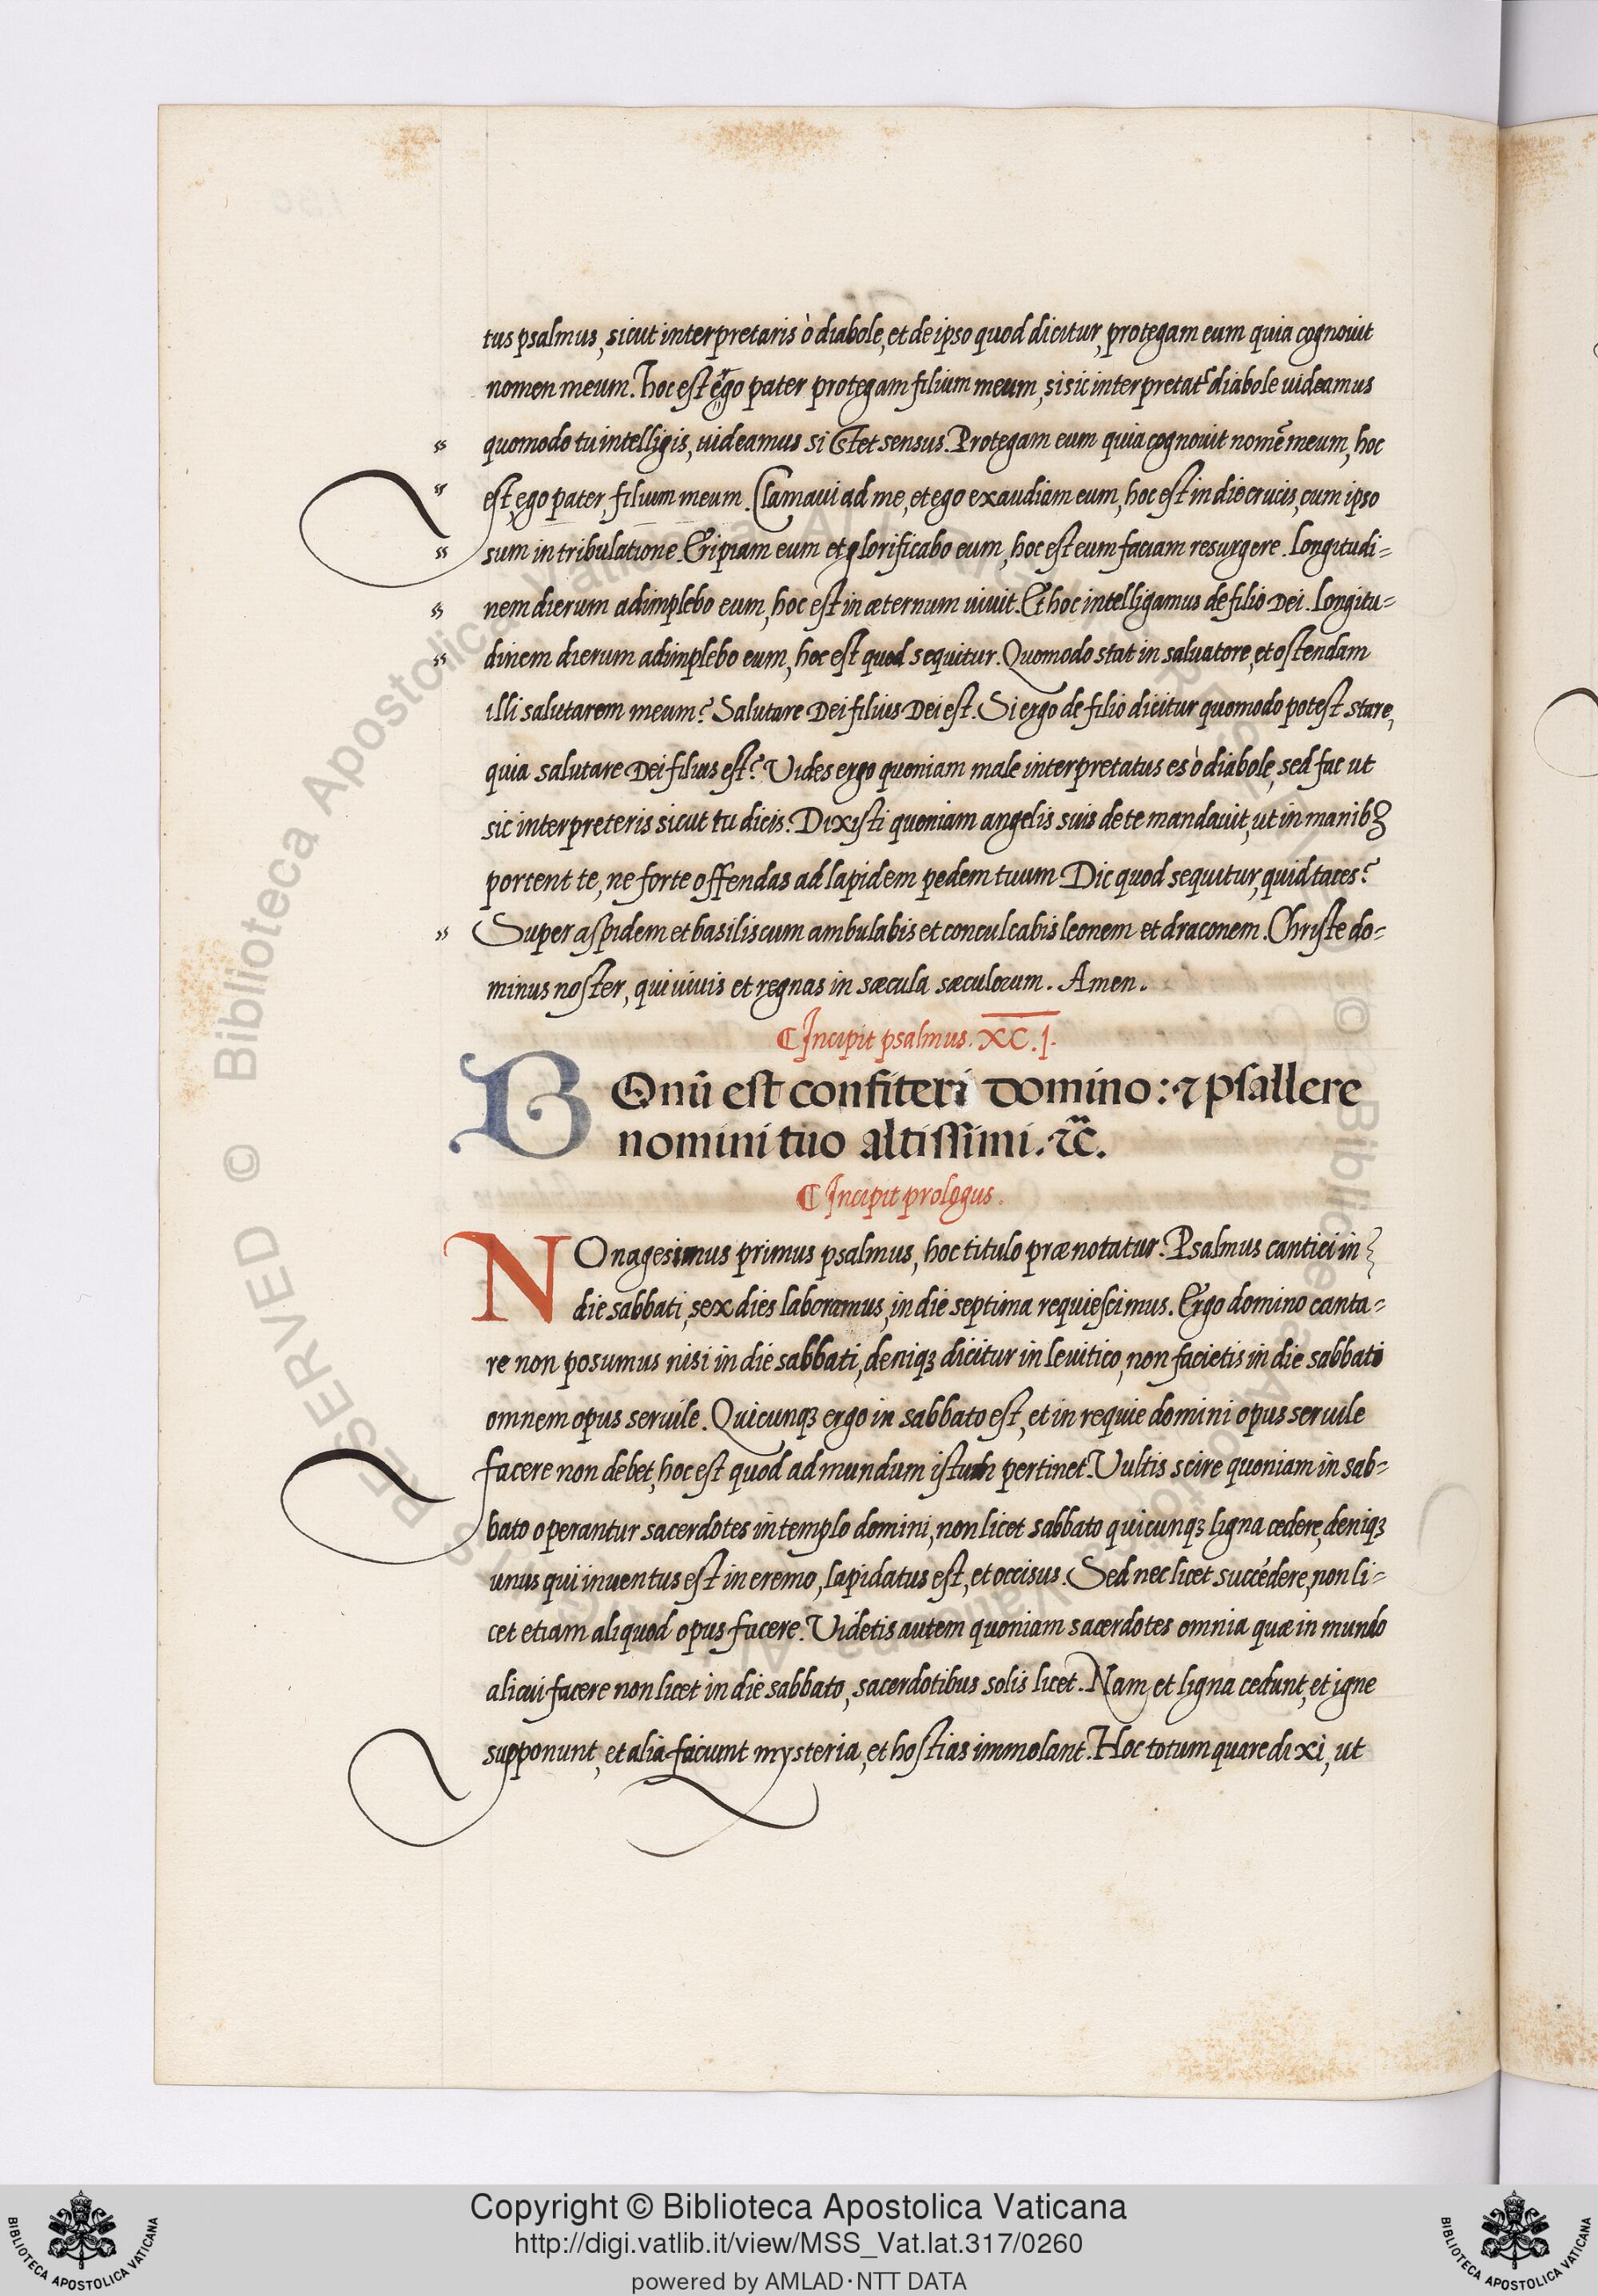 tus psalmus, sicut interpretaris ò diabole, et de ipso quod dicitur, protegam eum quia cognouit
nomen meum. hoc est ego pater protegam filium meum, si sic interpretat diabole uideamus
quomodo tu intelligis, uideamus si stet sensus. Protegam eum quia cognouit nomē meum, hoc
est, ego pater, filium meum. Clamaui ad me, et ego exaudiam eum, hoc est in die crucis, cum ipso
sum in tribulatione. Eripiam eum et glorificabo eum, hoc est eum faciam resurgere. Longitudi=
nem dierum adimplebo eum, hoc est in æternum uiuit. Et hoc intelligamus de filio Dei. Longitu=
dinem dierum adimplebo eum, hoc est quod sequitur. Quomodo stat in saluatore, et ostendam
illi salutarem meum? Salutare Dei filius Dei est. Si ergo de filio dicitur quomodo potest stare,
quia salutare Dei filius est? Vides ergo quoniam male interpretatus es ò diabole, sed fac ut
sic interpreteris sicut tu dicis. Dixisti quoniam angelis suis de te mandauit, ut in manibꝫ
portent te, ne forte offendas ad lapidem pedem tuum Dic quod sequitur, quid taces?
Super aspidem et basiliscum ambulabis et conculcabis leonem et draconem. Christe do=
minus noster, qui uiuis et regnas in sæcula sæculorum. Amen.
¶ Incipit psalmus. XC.I.
BOnū est confiteri domino: ⁊ psallere
nomini tuo altissimi. ⁊c̃.
¶ Incipit prologus.
NOnagesimus primus psalmus, hoc titulo prænotatur. Psalmus cantici in
die sabbati, sex dies laboramus, in die septima requiescimus. Ergo domino canta=
re non posumus nisi in die sabbati, deniqꝫ dicitur in leuitico, non facietis in die sabbati
omnem opus seruile. Quicunqꝫ ergo in sabbato est, et in requie domini opus seruile
facere non debet, hoc est quod ad mundum istum pertinet. Vultis scire quoniam in sab=
bato operantur sacerdotes in templo domini, non licet sabbato quicunqꝫ ligna cedere, deniqꝫ
unus qui inuentus est in eremo, lapidatus est, et occisus. Sed nec licet succedere, non li=
cet etiam aliquod opus facere. Videtis autem quoniam sacerdotes omnia quæ in mundo
alicui facere non licet in die sabbato, sacerdotibus solis licet. Nam et ligna cedunt, et igne
supponunt, et alia faciunt mysteria, et hostias immolant. Hoc totum quare dixi, ut
Copyright © Biblioteca Apostolica Vaticana
http://digi.vatlib.it/view/MSS_Vat.lat.317/0260
powered by AMLAD·NTT DATA
BIBLIOTECA APOSTOLICA VATICANA
BIBLIOTECA APOSTOLICA VATICANA